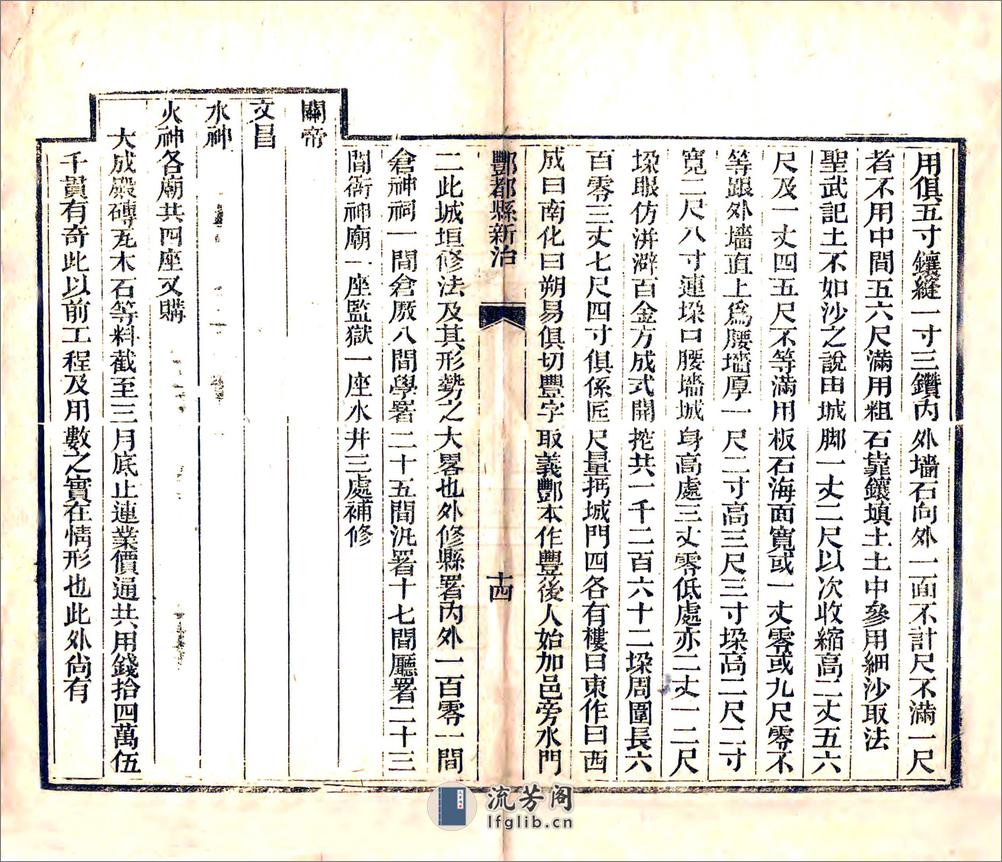 用俱五寸鑲縫一寸三鑽內外墻石向外一面不計尺不滿一尺
者不用中間五六尺滿用粗石靠鑲填土土中參用細沙取法
聖武記土不如沙之說由城脚一丈二尺以次收縮高二丈五六
尺及一丈四五尺不等滿用板石海面寬或一丈零或九尺零不
等跟外墻直上爲腰墻厚一尺二寸高三尺三寸垛高二尺二寸
寬二尺八寸連垛曰腰墻城身高處三丈零低處亦二丈一二尺
垛眼仿洴澼百金方成式開挖共一千二百六十二垛周圍長六
百零三丈七尺四寸俱係匠尺量抅城門四各有樓曰東作曰西
成曰南化曰朔易俱切豐字取義酆本作豐後人始加邑旁水門
酆都縣新治
十四
二此城垣修法及其形勢之大畧也外修縣署內外一百零一間
倉神祠一間倉厫八間學署二十五間汛署十七間廳署二十三
間衙神廟一座監獄一座水井三處補修
關帝
文昌
水神
火神各廟共四座又購
大成殿磚瓦木石等料截至三月底止連業價通共用錢拾四萬伍
千貫有奇此以前工程及用數之實在情形也此外尙有
流芳阁
lfglib.cn